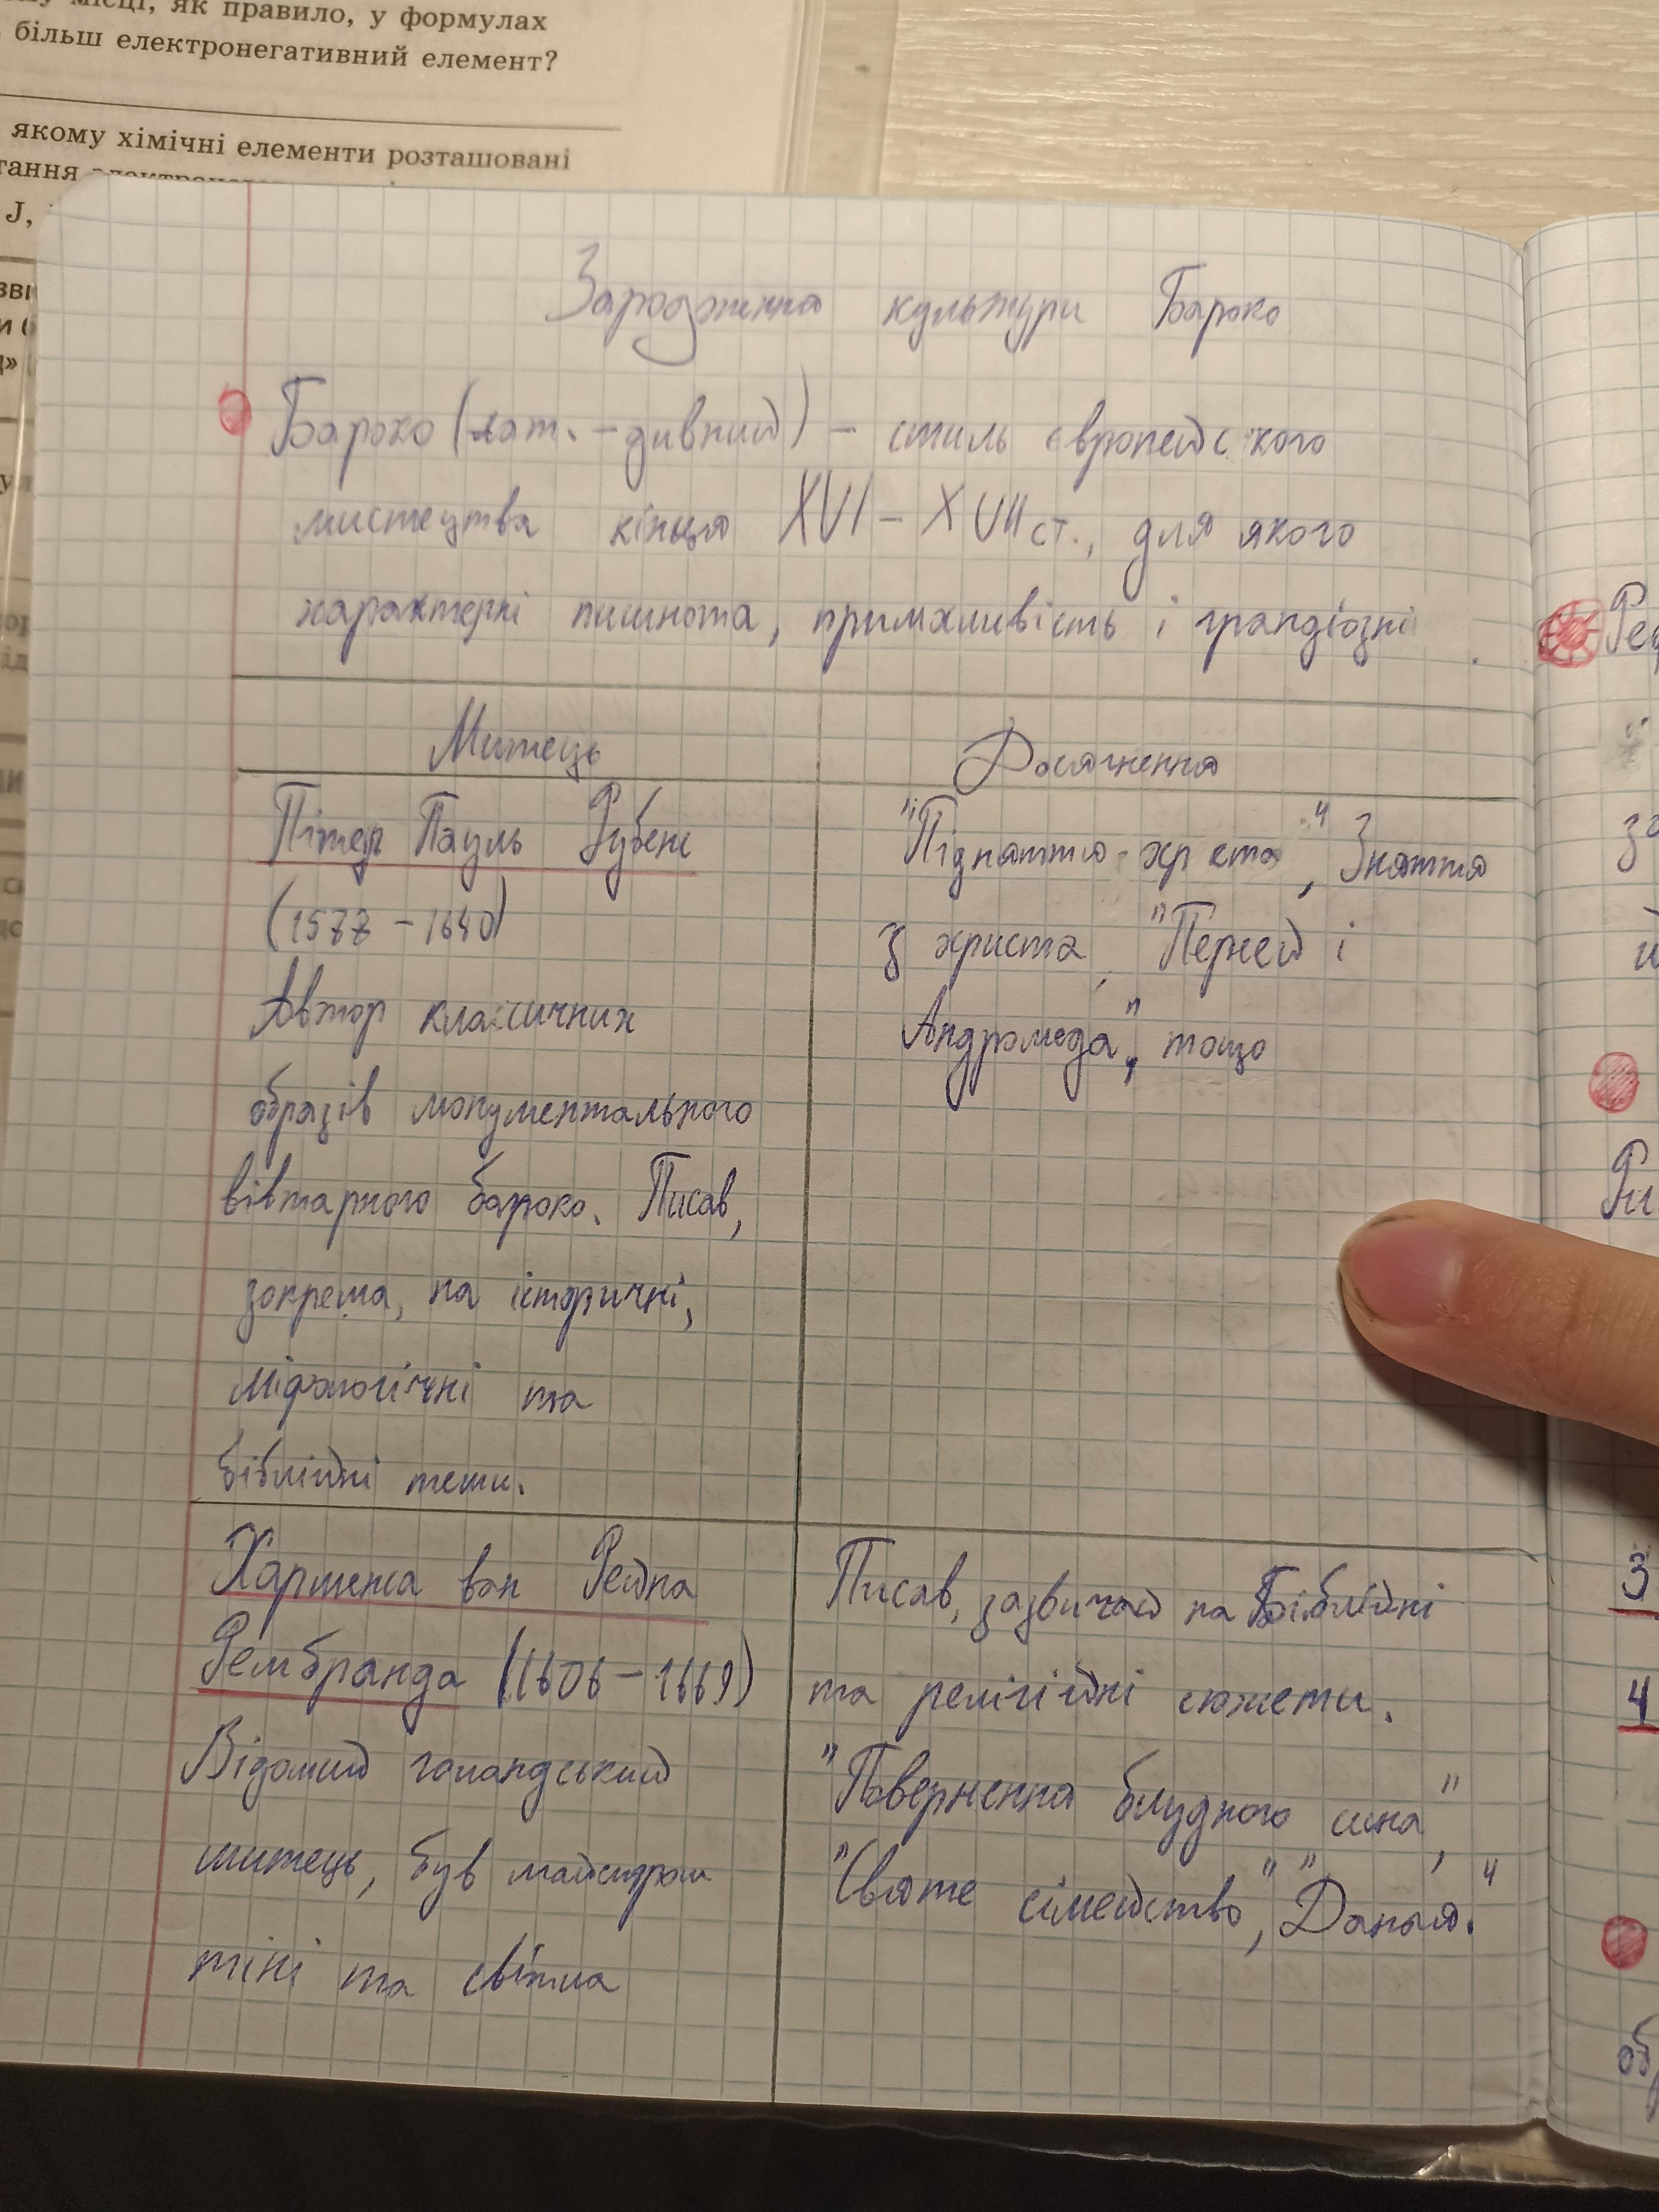 місці, як правило, у формулах
більш електронегативний елемент?
якому хімічні елементи розташовані
J,
Зародження культури Бароко
Бароко (лат. – дивний) – стиль європейського
мистецтва кінця XVI – XVII ст., для якого
характерні пишнота, примхливість і грандіозні
Митець
Досягнення
Пітер Пауль Рубенс
(1577 – 1640)
Автор класичних
образів монументального
вівтарного бароко. Писав,
зокрема, на історичні,
міфологічні та
біблійні теми.
"Підняття хрста", Зняття
з христа, "Персей і
Андромеда", тощо
Харменса ван Рейна
Рембранда (1606 – 1669)
Відомий голандський
митець, був майстром
тіні та світла
Писав, зазвичай на Біблійні
та релігійні сюжети.
"Повернення блудного сина",
"Святе сімейство", "Даная."
3
4